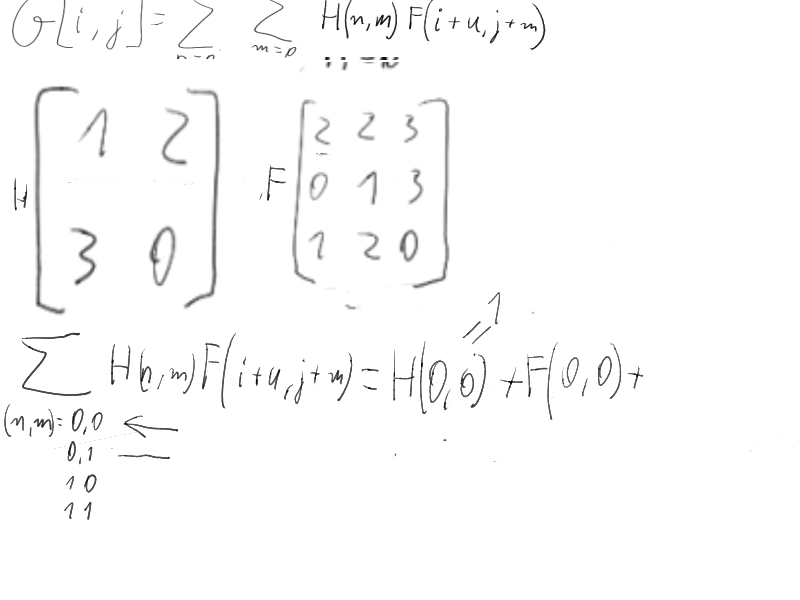 G[i,j]= ∑ ∑ H(n,m) F(i+u,j+m)
n=0 m=0
H [1 2
3 0]
F [2 2 3
0 1 3
1 2 0]
1
∑ H(n,m)F(i+u,j+m)=H(0,0)+F(0,0)+
(n,m)=0,0 ←
0,1 —
1 0
1 1